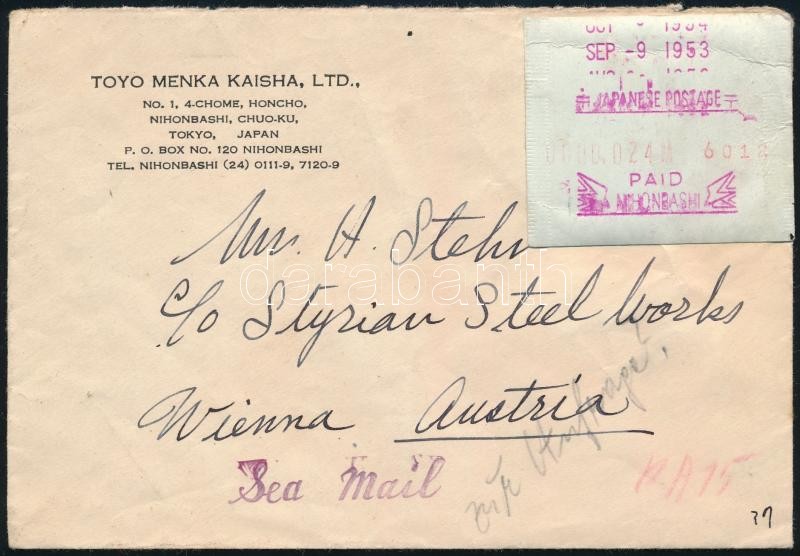 TOYO MENKA KAISHA, LTD.,
No. 1, 4-CHOME, HONCHO,
NIHONBASHI, CHUO-KU,
TOKYO, JAPAN
P. O. BOX No. 120 NIHONBASHI
TEL. NIHONBASHI (24) 0111-9, 7120-9
SEP -9 1953
JAPANESE POSTAGE
024 6012
PAID
NIHONBASHI
Mrs. H. Stehr
c/o Styrian Steel Works
Wienna Austria
Sea Mail
darabanth
KA15
37